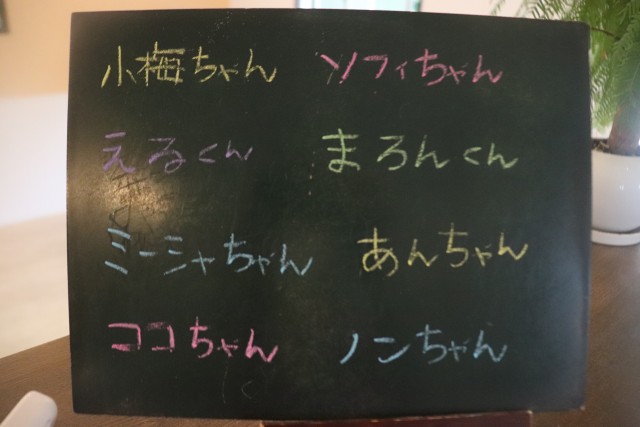 小梅ちゃん ソフィちゃん
えるくん まろんくん
ミーシャちゃん あんちゃん
ココちゃん ノンちゃん